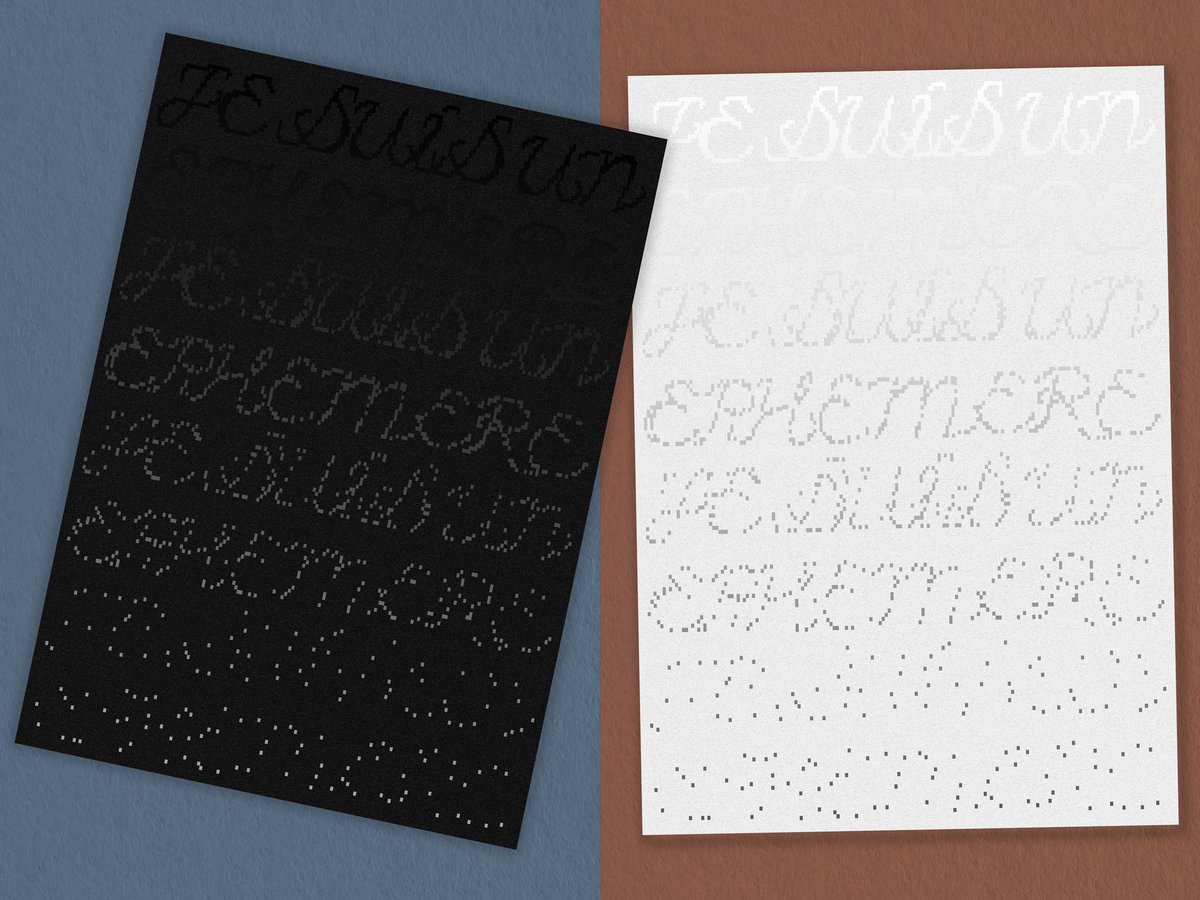 JE SUIS UN
EPHEMERE
JE SUIS UN
EPHEMERE
JE SUIS UN
EPHEMERE
JE SUIS UN
EPHEMERE
JE SUIS UN
EPHEMERE
JE SUIS UN
EPHEMERE